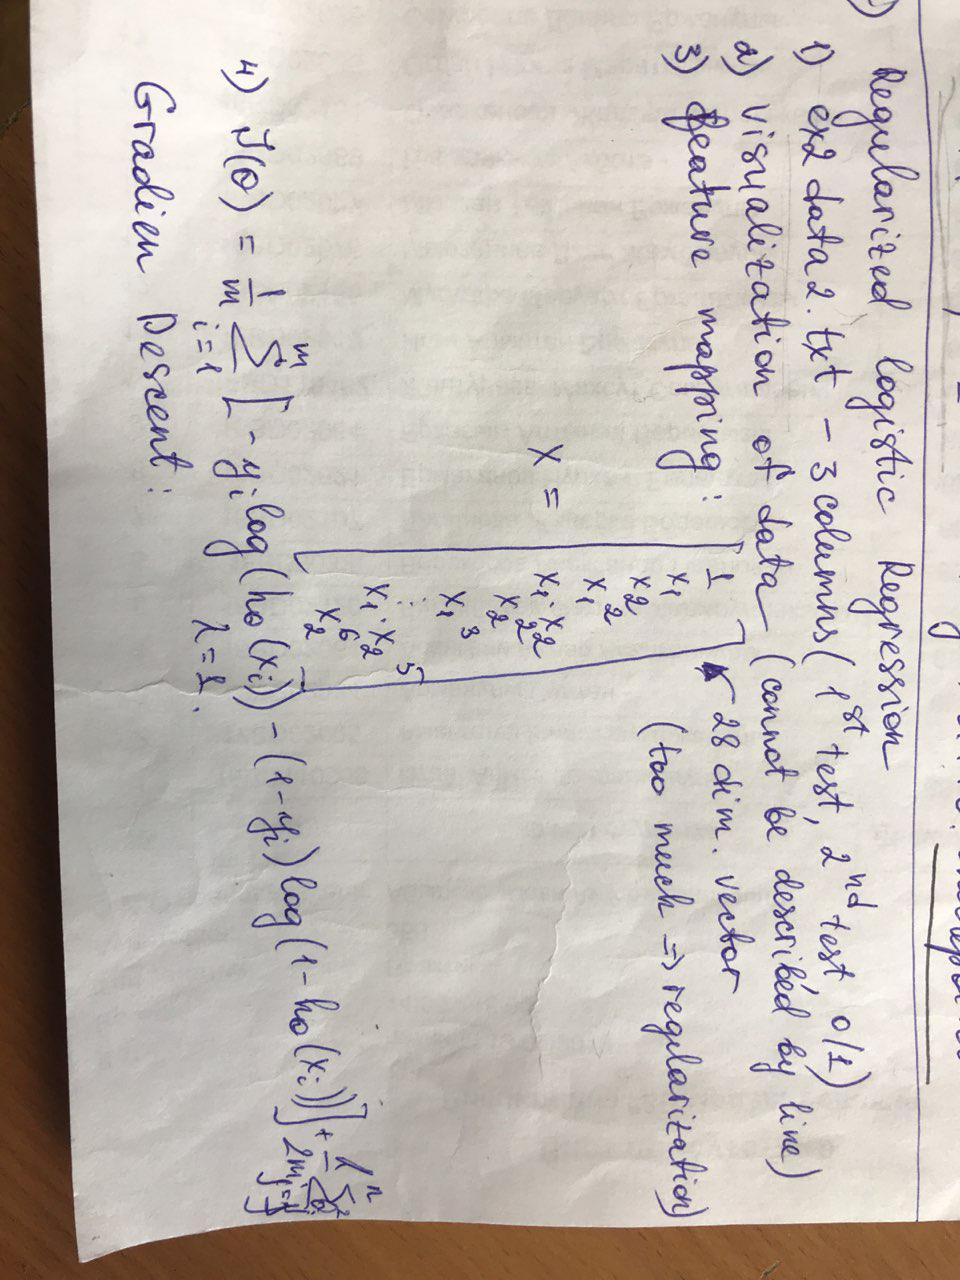 Regularized logistic Regression
1) ex2data2.txt – 3 columns (1st test, 2nd test, 0/1)
2) visualization of data (cannot be described by line)
3) feature mapping:
X = [1
x₁
x₂
x₁²
x₁·x₂
x₂²
x₁³
⋮
x₁·x₂⁵
x₂⁶]
← 28 dim. vector
(too much => regularization)
4) J(θ) = 1/m Σᵢ₌₁ᵐ [-yᵢ log(hθ(xᵢ)) - (1-yᵢ) log(1-hθ(xᵢ))] + λ/2m Σⱼ₌₁ⁿ θⱼ²
λ=1.
Gradien Descent: